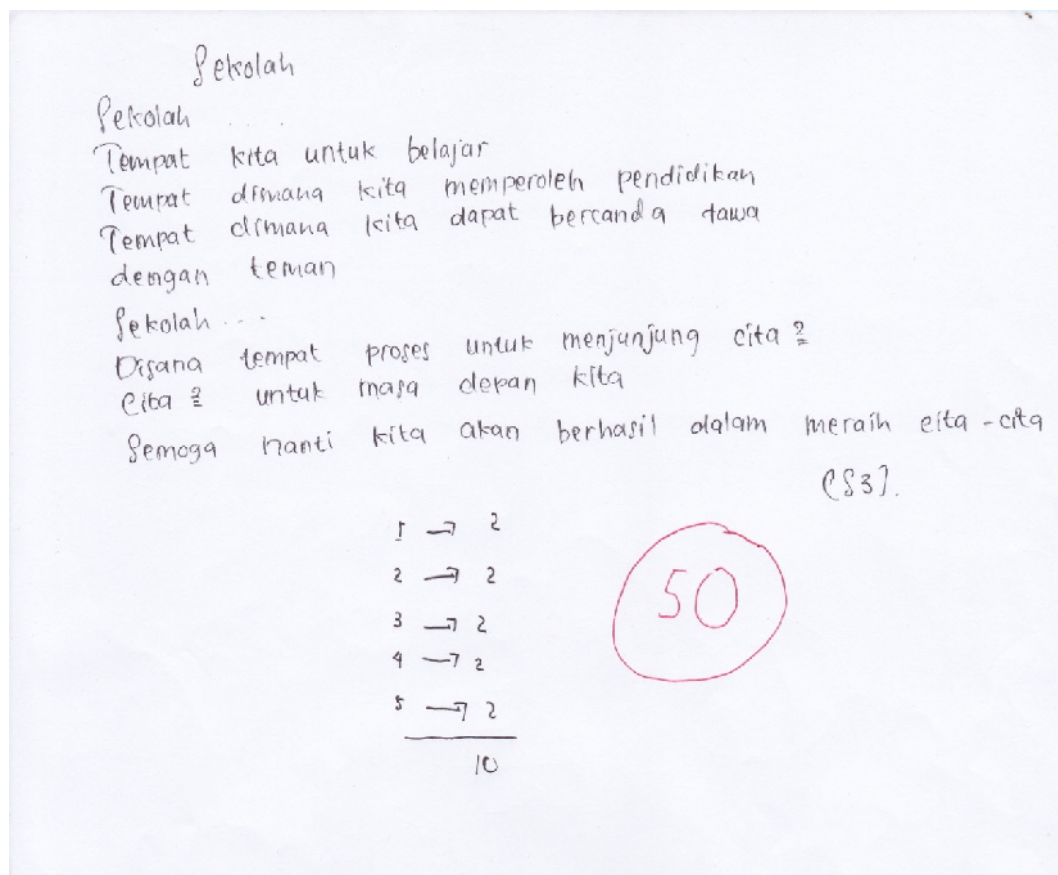 Sekolah
Sekolah ....
Tempat kita untuk belajar
Tempat dimana kita memperoleh pendidikan
Tempat dimana kita dapat bercanda tawa
dengan teman
Sekolah ....
Disana tempat proses untuk menjunjung cita 2
Cita 2 untuk masa depan kita
Semoga nanti kita akan berhasil dalam meraih cita-cita
(S3).
1 → 2
2 → 2
3 → 2
4 → 2
5 → 2
10
50